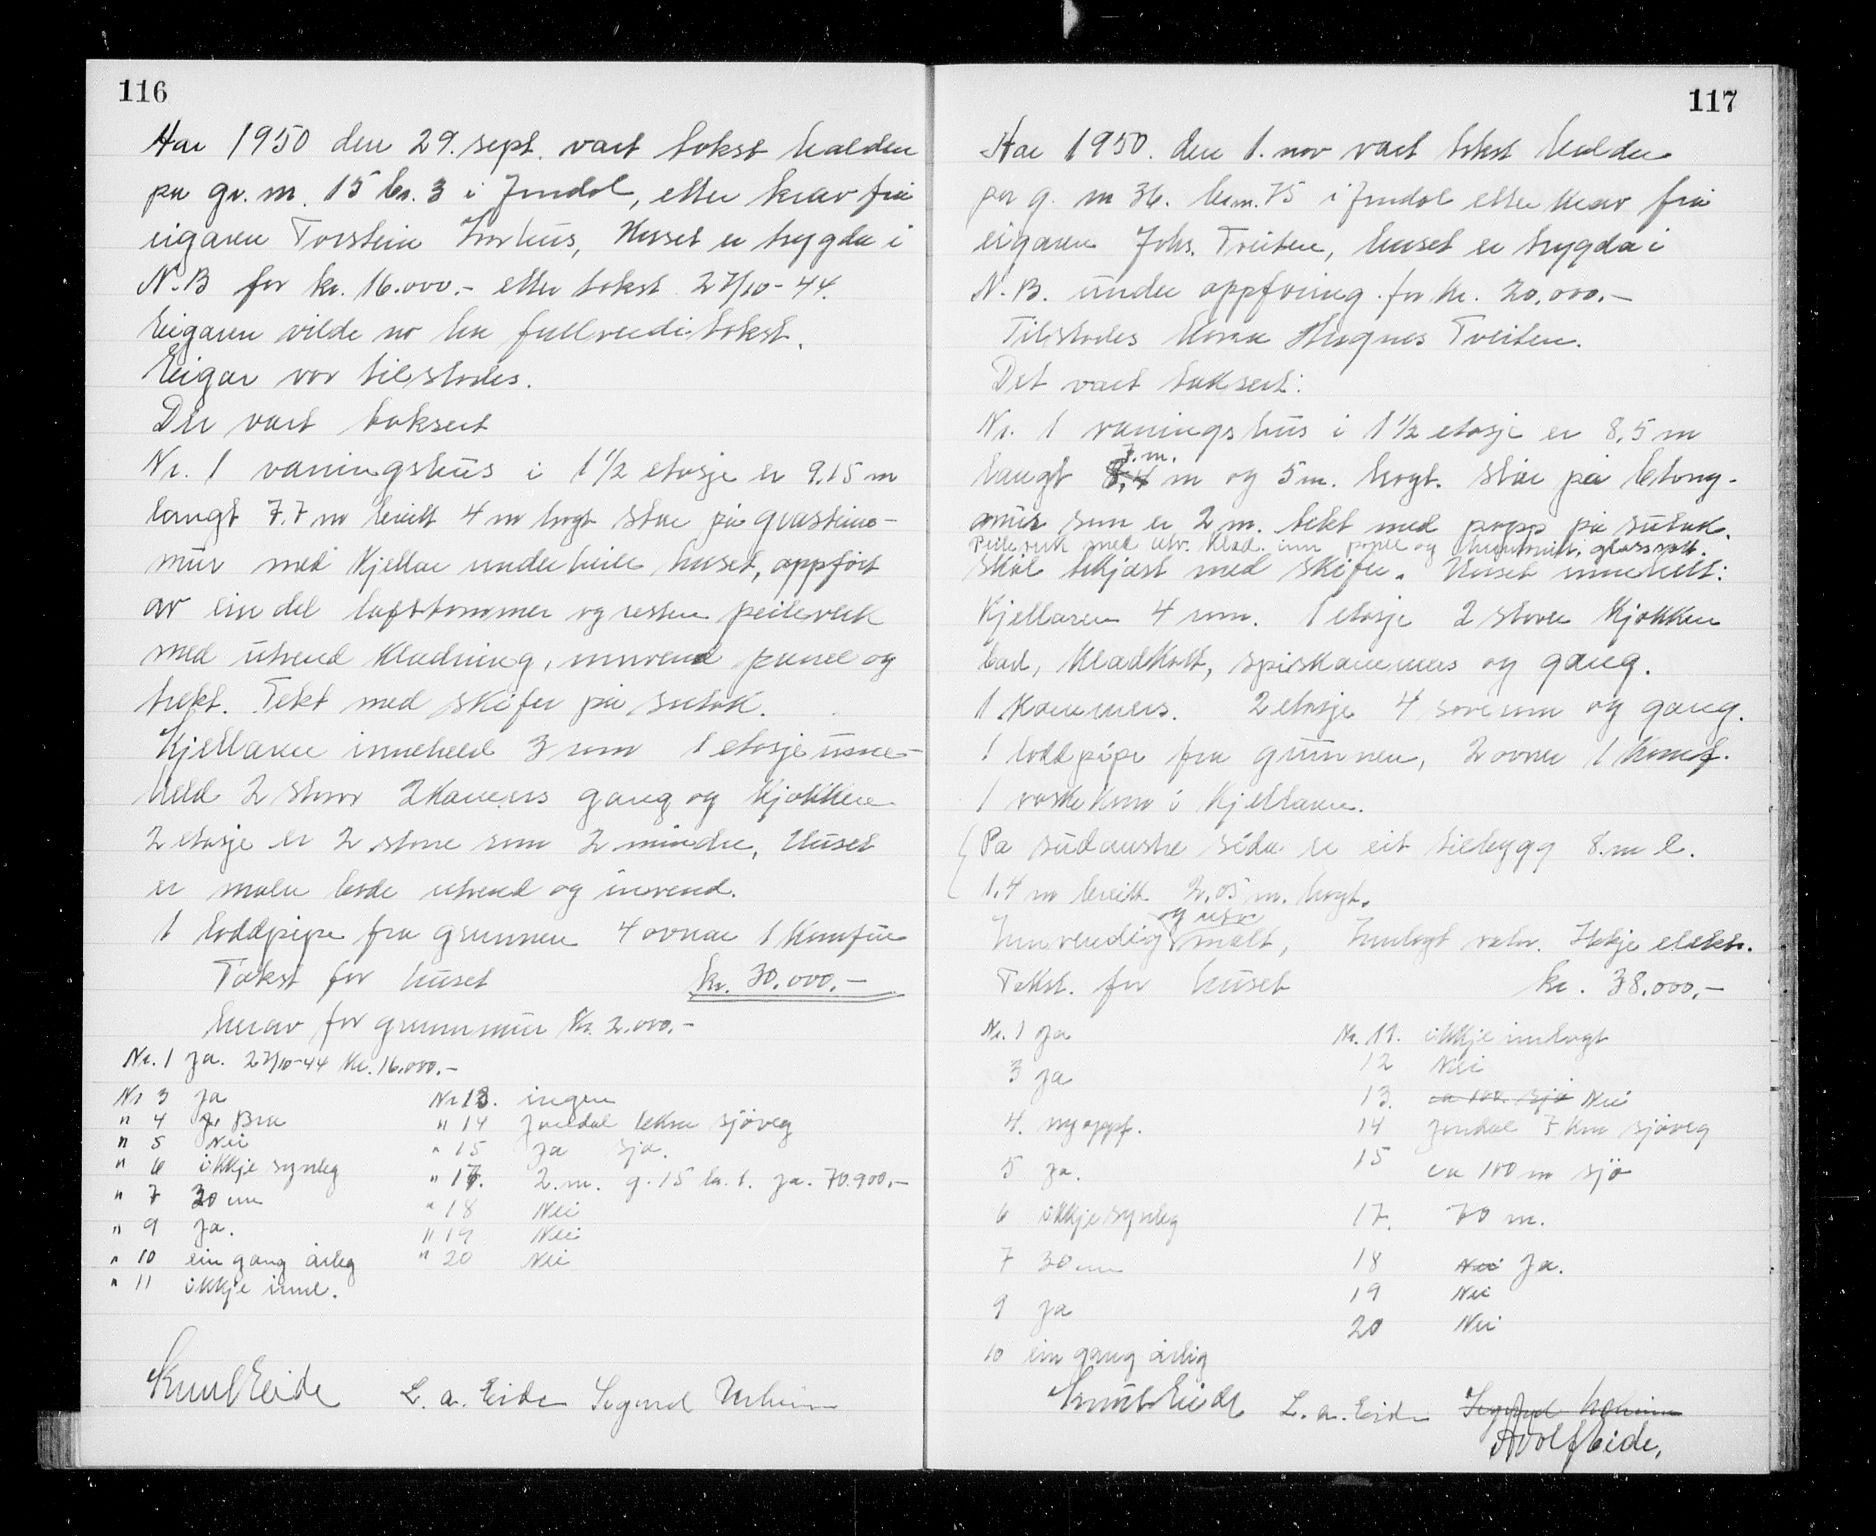 116
Har 1950 den 29. sept. vart takst halden
på gr. nr. 15 br. 3 i Jondal, etter krav frå
eigaren Torstein Torhus, Huset er trygda i
N.B for kr. 16.000.- etter takst 27/10-44.
Eigaren vilde no ha fullverdi takst.
Eigar var tilstades.
Der vart taksert
Nr. 1 våningshus i 1 1/2 etasje er 9,15 m
langt 7.7 m breitt 4 m högt står på gråsteins-
mur med kjellar under heile huset, oppfört
av ein del lafttömmer og resten peileverk
med utvend kledning, innvend panel og
trekt. Tekt med skifer på sutak.
Kjellaren inneheld 3 rom 1 etasje inne-
held 2 stover 2 kamers gang og kjökken
2 etasje er 2 store rom 2 mindre, Huset
er måla både utvend og invend.
1 loddpipe fra grunnen 4 ovnar 1 komfur
Takst for huset kr. 30.000,-
krav for grunnmur kr. 2.000,-
Nr. 1 Ja. 27/10-44 kr. 16.000.-
Nr 3 Ja Nr 13. ingen
" 4 Bra " 14 Jondal 1 km sjöveg
" 5 Nei " 15 Ja sjö.
" 6 ikkje synleg " 17. 2. m. g. 15 br. 1. ja. 70.900,-
" 7 30 cm " 18 Nei
" 9 Ja. " 19 Nei
" 10 ein gang årleg " 20 Nei
" 11 ikkje innl.
Knut Eide L. A. Eide Sigurd
117
Har 1950. den 1. nov vart takst halden
på g. nr 36. br.nr. 75 i Jondal etter krav frå
eigaren Johs. Treiten, huset er trygda i
N.B. under oppföring for kr. 20.000.-
Tilstades kona Magnes Treiten.
Det vart taksert:
Nr. 1 våningshus i 1 1/2 etasje er 8,5 m
7. m.
langt 8,4 m og 5 m. högt. står på betong-
mur som er 2 m. tekt med papp på sutak.
Peileverk med utv. kled. inn panel og
skal tekjast med skifer. Huset inneheld:
Kjellaren 4 rom. 1 etasje 2 stover kjökken
bad, kledkott, spiskammers og gang.
1 kammers. 2 etasje 4 soverom og gang.
1 loddpipe fra grunnen, 2 ovner 1 komf.
1 vaskekom i kjellaren.
På sudaustre sida er eit tilbygg 8. m l.
1,4 m breitt 2,05 m. högt.
og utv
Innvendig malt, Innlagt vatn. Ikkje elektr.
Takst. for huset kr. 38.000,-
Nr. 1 Ja Nr. 11. ikkje innlagt
3 Ja 12 Nei
4. ny oppf. 13. ca 100. sjö Nei
5 Ja. 14 Jondal 7 km sjöveg
6 ikkje synleg 15 ca 100 m sjö
7 30 cm 17. 70 m.
9 Ja 18 Nei Ja.
10 ein gang årlig 19 Nei
20 Nei
Knut Eide L. A. Eide
Adolf Eide,